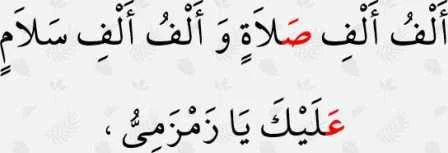 أَلْفُ أَلْفِ صَلَاةٍ وَ أَلْفُ أَلْفِ سَلَامٍ
عَلَيْكَ يَا زَمْزَمِىُّ ،